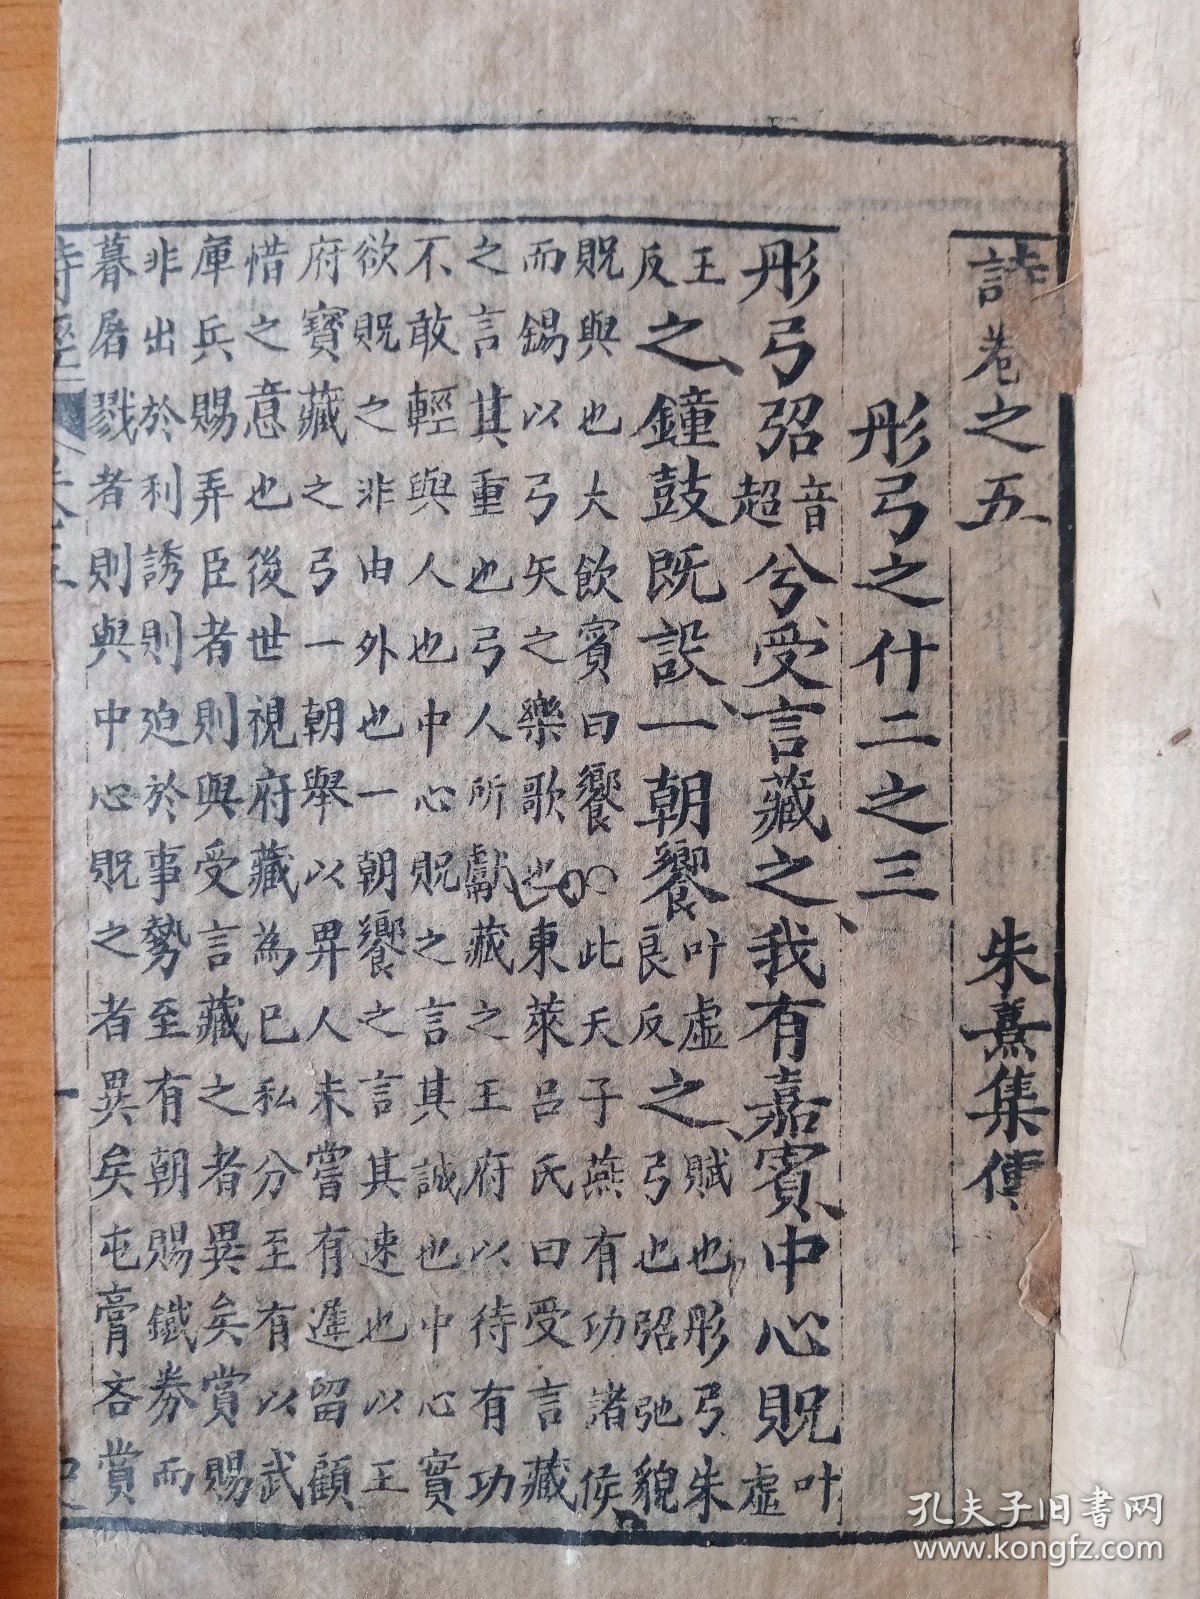 詩卷之五 朱熹集傳
彤弓之什二之三
彤弓弨音超兮受言藏之我有嘉賓中心貺叶虛
王反之鐘鼓既設一朝饗叶虛良反之賦也彤弓朱弓也弨弛貌
貺與也大飲賓曰饗○此天子燕有功諸侯
而錫以弓矢之樂歌也東萊呂氏曰受言藏
之言其重也弓人所獻藏之王府以待有功
不敢輕與人也中心貺之言其誠也中心實
欲貺之非由外也一朝饗之言其速也以王
府寶藏之弓一朝舉以畀人未嘗有遲留顧
惜之意也後世視府藏為己私分至有以武
庫兵賜弄臣者則與受言藏之者異矣賞賜
非出於利誘則迫於事勢至有朝賜鐵券而
暮屠戮者則與中心貺之者異矣屯膏吝賞
孔夫子旧书网
www.kongfz.com